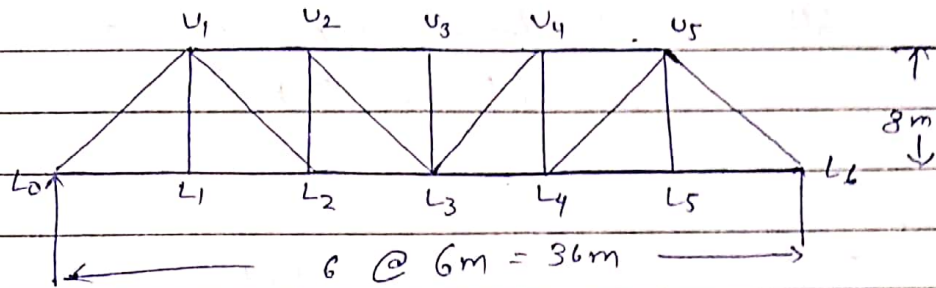 U1 U2 U3 U4 U5
8m
L0 L1 L2 L3 L4 L5 L6
6 @ 6m = 36m